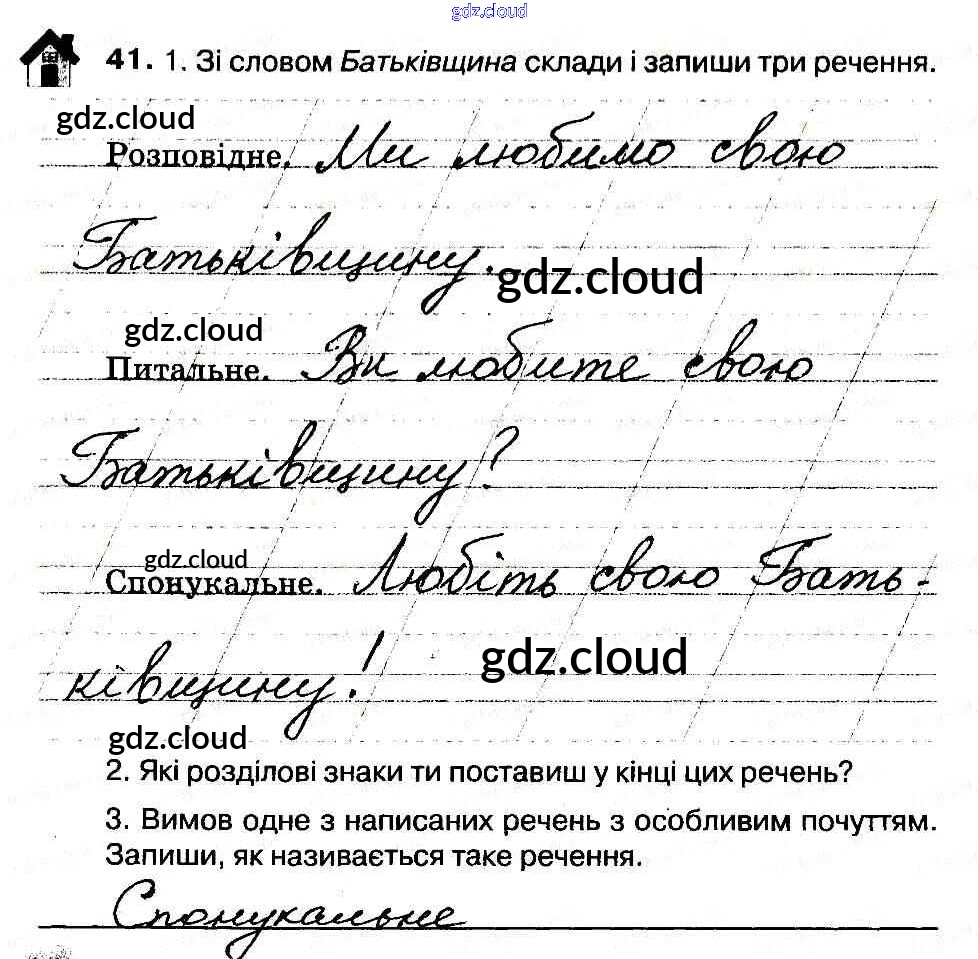 gdz.cloud
41. 1. Зі словом Батьківщина склади і запиши три речення.
gdz.cloud
Розповідне. Ми любимо свою
Батьківщину.
gdz.cloud
gdz.cloud
Питальне. Ви любите свою
Батьківщину?
gdz.cloud
Спонукальне. Любіть свою Бать-
ківщину!
gdz.cloud
gdz.cloud
2. Які розділові знаки ти поставиш у кінці цих речень?
3. Вимов одне з написаних речень з особливим почуттям.
Запиши, як називається таке речення.
Спонукальне